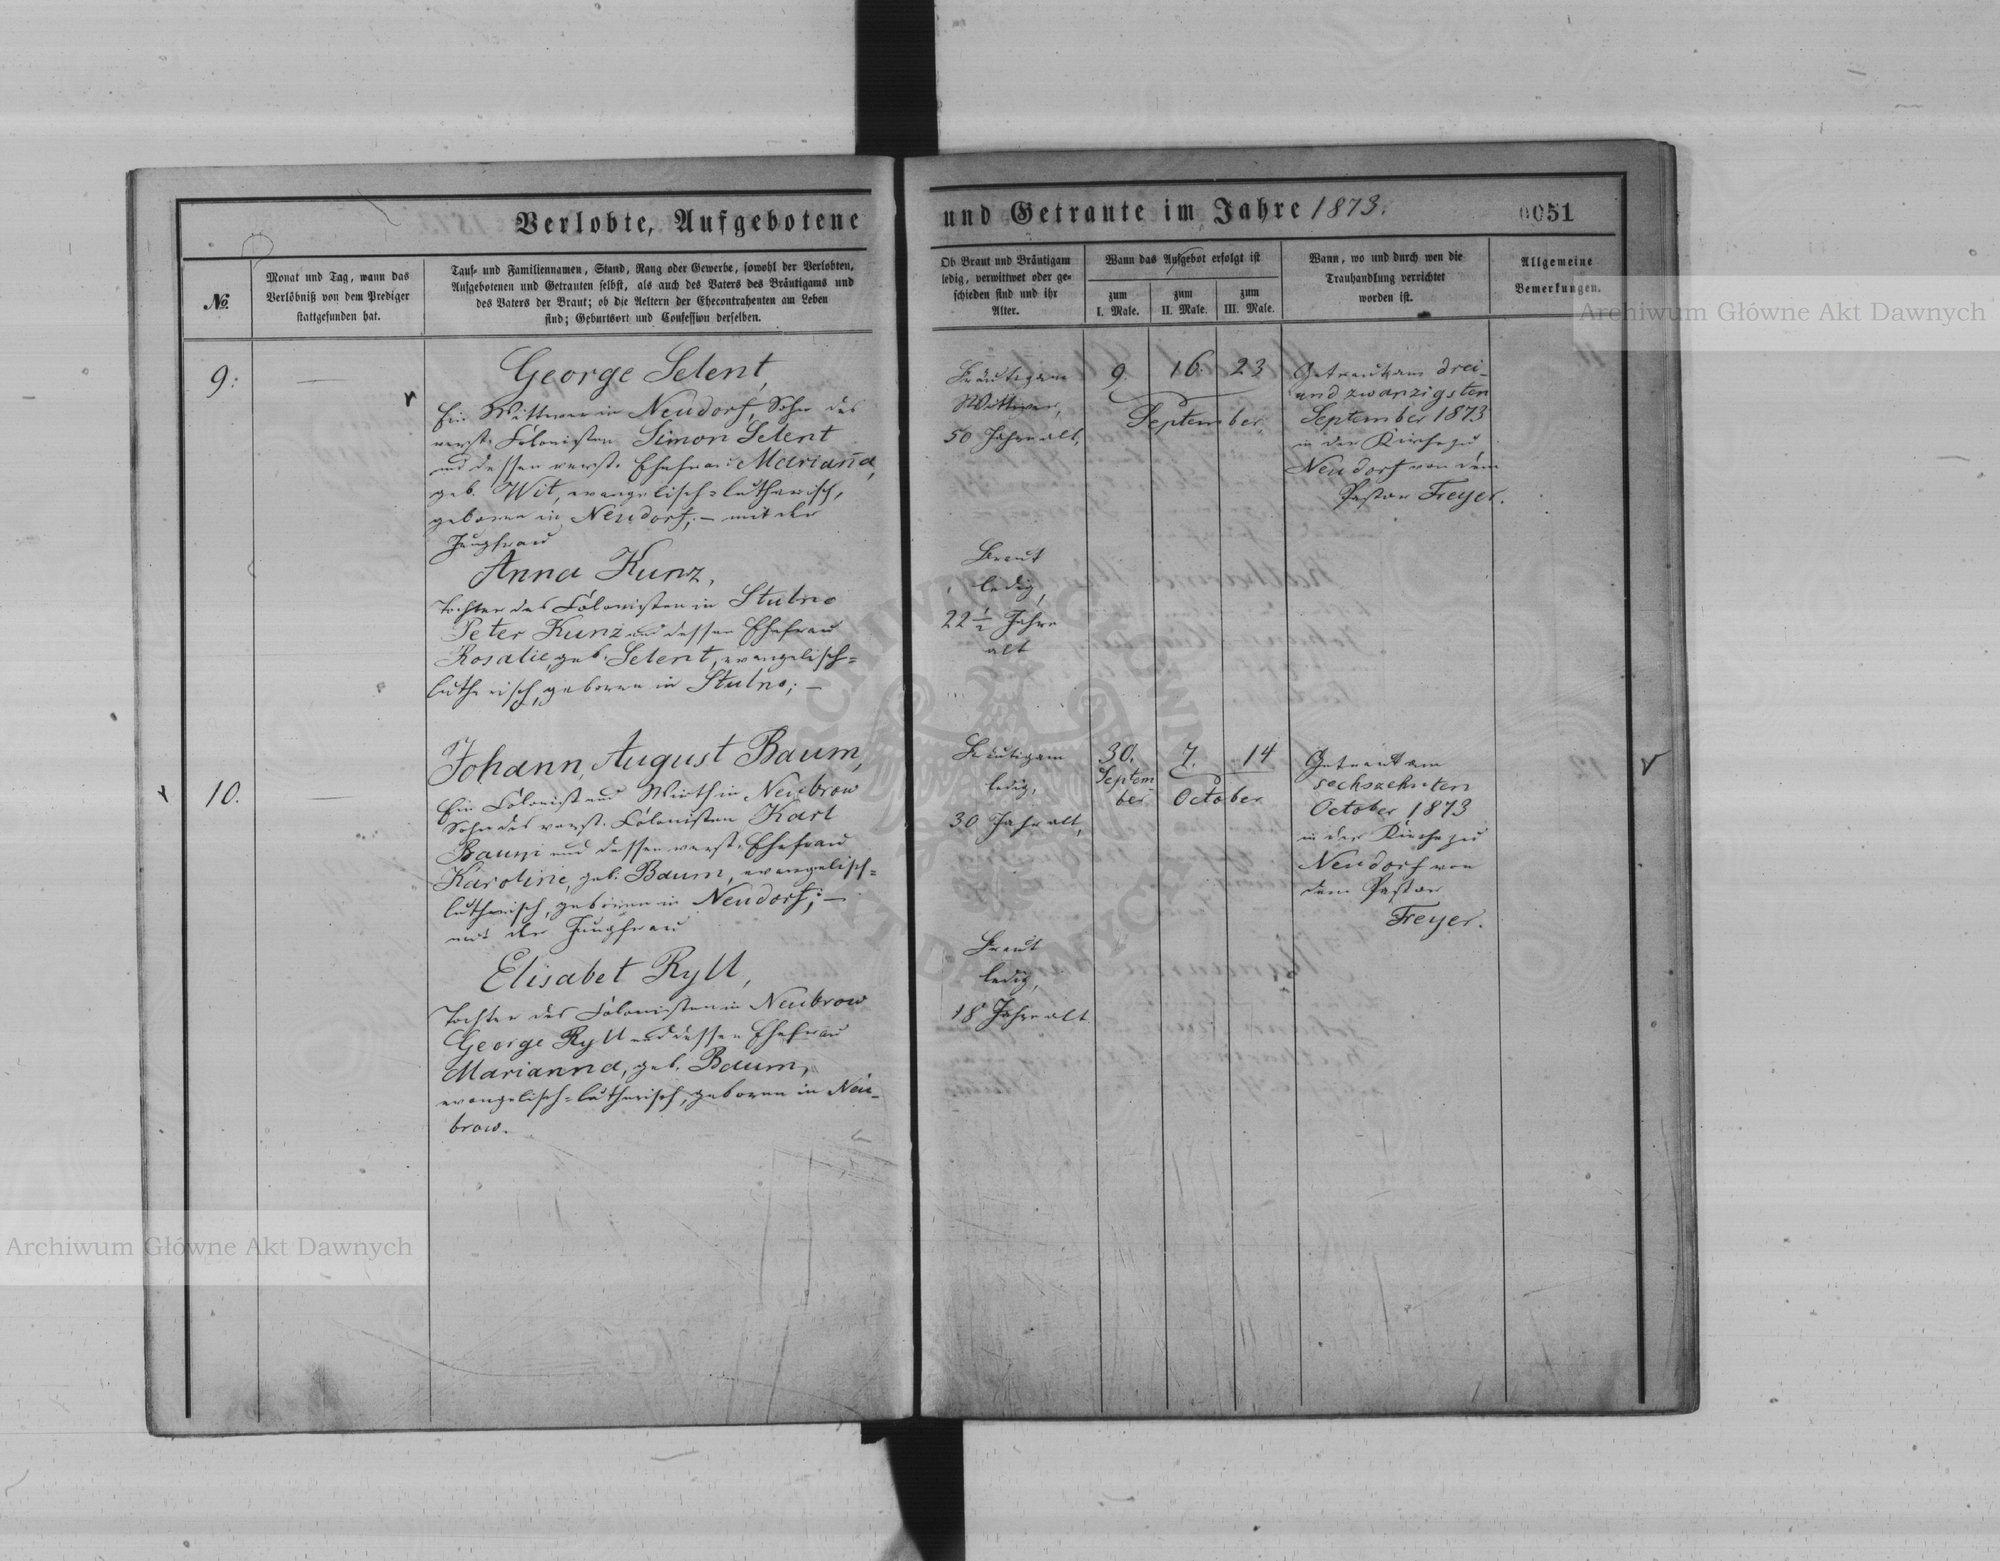 Verlobte, Aufgebotene
und Getraute im Jahre 1873.
0051
№
Monat und Tag, wann das
Verlöbniß von dem Prediger
stattgefunden hat.
Tauf- und Familiennamen, Stand, Rang oder Gewerbe, sowohl der Verlobten,
Aufgebotenen und Getrauten selbst, als auch des Vaters des Bräutigams und
des Vaters der Braut; ob die Aeltern der Ehecontrahenten am Leben
sind; Geburtsort und Confession derselben.
Ob Braut und Bräutigam
ledig, verwittwet oder ge-
schieden sind und ihr
Alter.
Wann das Aufgebot erfolgt ist
zum
I. Male.
zum
II. Male.
zum
III. Male.
Wann, wo und durch wen die
Trauhandlung verrichtet
worden ist.
Allgemeine
Bemerkungen.
9.
George Selent,
Ein Wittwer in Neudorf, Sohn des
verst. Colonisten Simon Selent
und dessen verst. Ehefrau Marianna,
geb. Wit, evangelisch-lutherisch,
geboren in Neudorf; — mit der
Jungfrau
Anna Kunz,
Tochter des Colonisten in Stulno
Peter Kunz und dessen Ehefrau
Rosalie, geb. Selent, evangelisch-
lutherisch, geboren in Stulno; —
Bräutigam
Wittwer,
50 Jahre alt,
Braut
ledig,
22 ½ Jahre
alt
9. 16. 23
September
Getraut am drei-
und zwanzigsten
September 1873
in der Kirche zu
Neudorf von dem
Pastor Freyer.
10.
Johann August Baum,
Ein Colonist und Wirth in Neubrow
Sohn des verst. Colonisten Karl
Baum und dessen verst. Ehefrau
Karoline, geb. Baum, evangelisch-
lutherisch, geboren in Neudorf; —
mit der Jungfrau
Elisabet Ryll,
Tochter des Colonisten in Neubrow
George Ryll und dessen Ehefrau
Marianna, geb. Baum,
evangelisch-lutherisch, geboren in Neu-
brow.
Bräutigam
ledig,
30 Jahr alt,
Braut
ledig,
18 Jahre alt
30. 7. 14
Septem-
ber October
Getraut am
sechszehnten
October 1873
in der Kirche zu
Neudorf von
dem Pastor
Freyer.
Archiwum Główne Akt Dawnych
Archiwum Główne Akt Dawnych
ARCHIWUM GŁÓWNE
AKT DAWNYCH